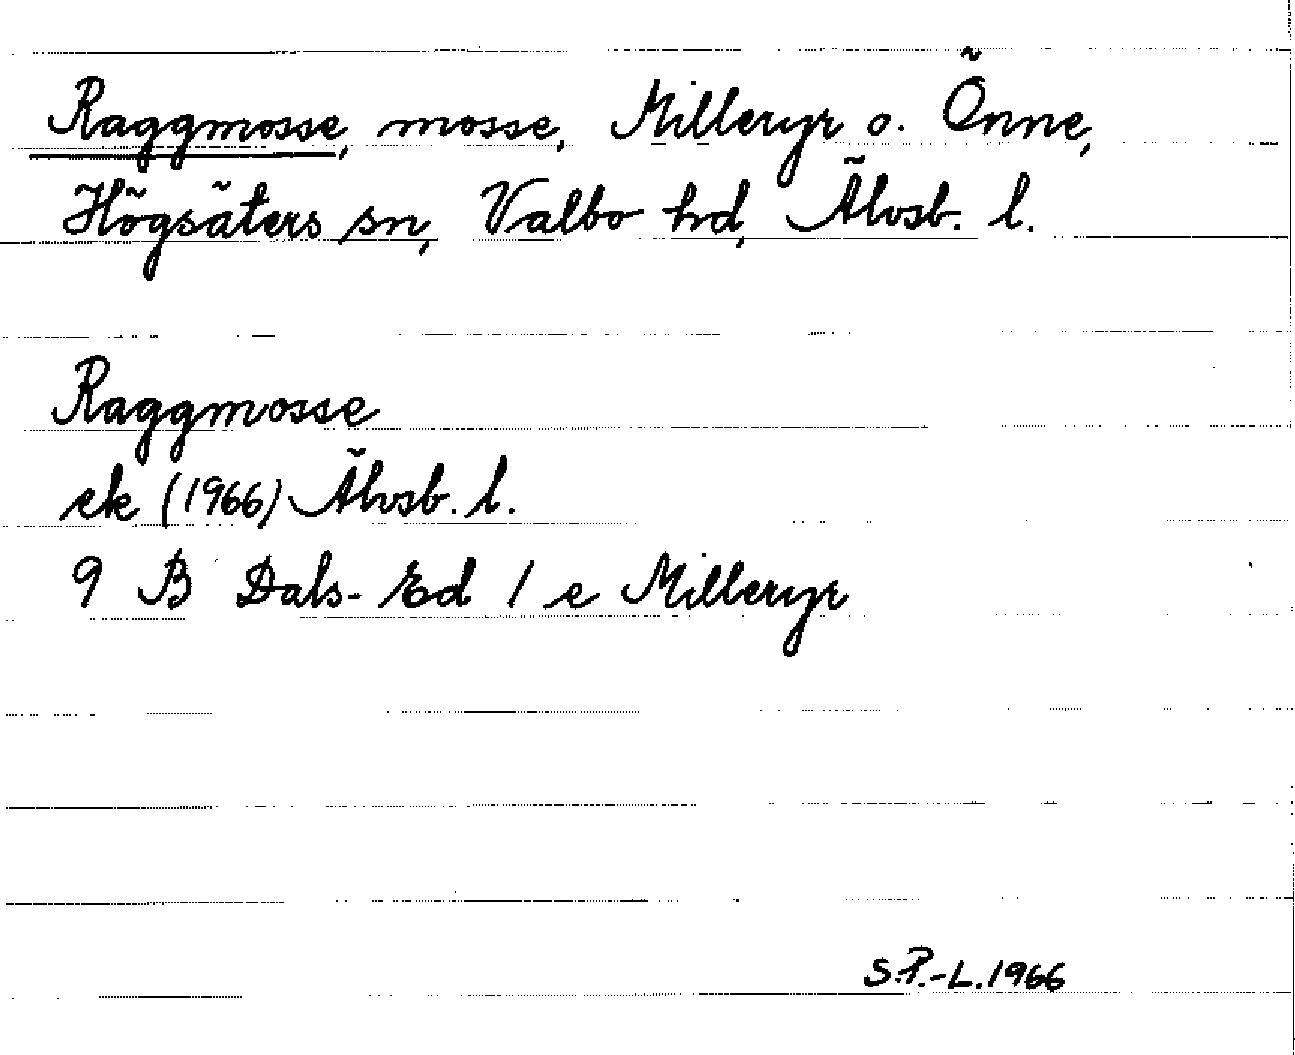 Raggmosse, mosse, Milleryr o. Önne,
Högsäters sn, Valbo hd, Älvsb. l.
Raggmosse
ek (1966) Älvsb. l.
9 B Dals-Ed 1 e Milleryr
S.P.-L. 1966